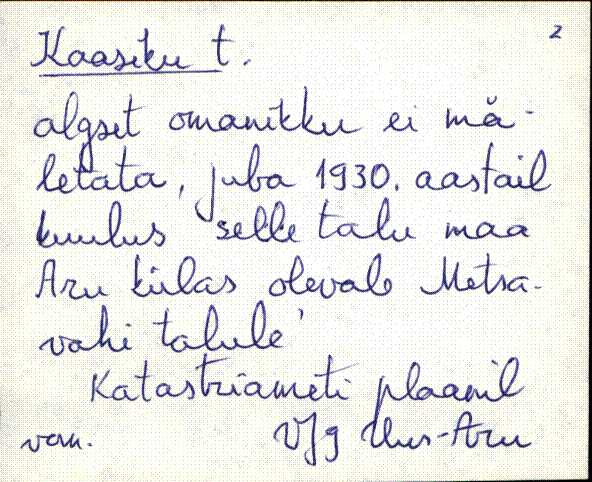 2
Kaasiku t.
algset omanikku ei mä-
letata, juba 1930. aastail
kuulus selle talu maa
Aru külas olevale Metsa-
vahi talule'
Katastriameti plaanil
vom. VJg Uus-Aru